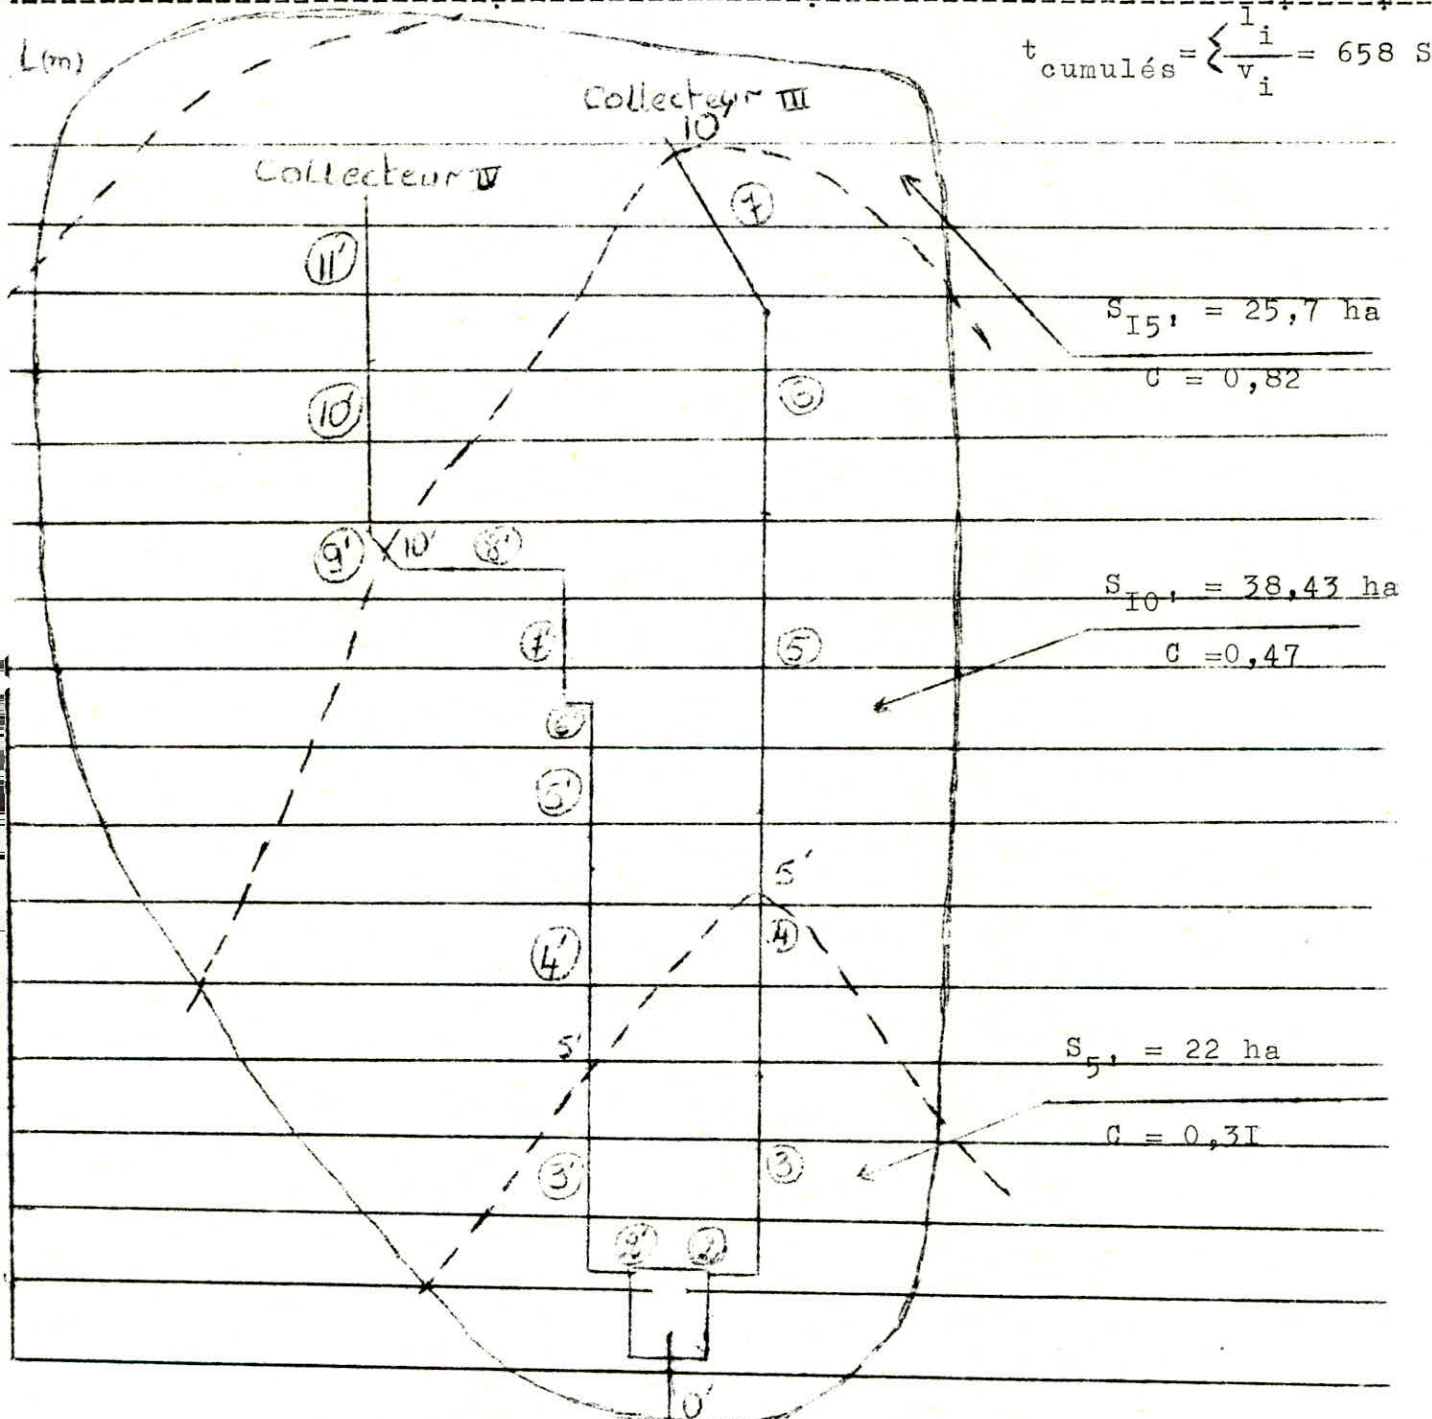 L(m)
t cumulés = Σ l_i / v_i = 658 S
Collecteur III
10'
Collecteur IV
7
11'
S_I5' = 25,7 ha
C = 0,82
6
10'
9'
10'
8'
S_I0' = 38,43 ha
C =0,47
7'
5
6'
5'
5'
4
4'
5'
S_5' = 22 ha
C = 0,3I
3'
3
2'
2
0'